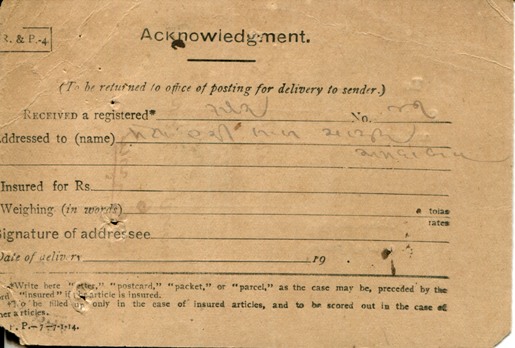 R. & P.-4
Acknowledgment.
(To be returned to office of posting for delivery to sender.)
RECEIVED a registered* No.
Addressed to (name)
Insured for Rs.
Weighing (in words) tolas
rates
Signature of addressee
Date of delivery 19
*Write here "letter," "postcard," "packet," or "parcel," as the case may be, preceded by the
word "insured" if the article is insured.
To be filled up only in the case of insured articles, and to be scored out in the case of
other articles.
P.–7–7-2-14.